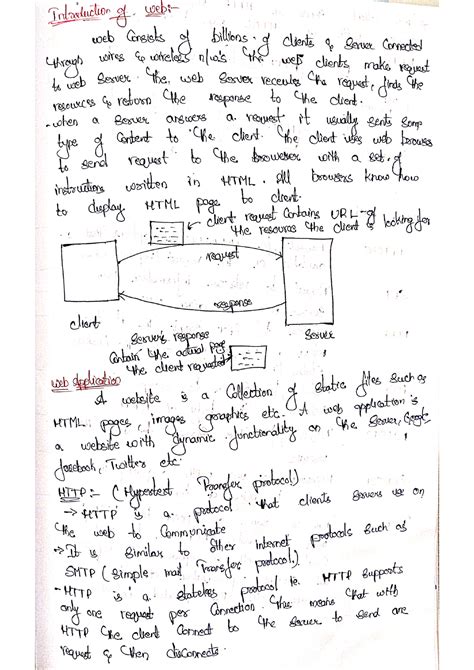 Introduction of web:-
web consists of billions of clients & server connected
through wires & wireless n/w's the web clients make request
to web server. the web server receives the request, finds the
resources & return the response to the client.
-when a server answers a request it usually sents some
type of content to the client. the client uses web browser
to send request to the browser with a set of
instructions written in HTML. All browsers know how
to display HTML page to client.
client request contains URL-of
the resource the client is looking for
request
response
client
Server
Server's response
contain the actual page
the client requested
web application
A website is a collection of static files such as
HTML pages, images graphics etc. A web application is
a website with dynamic functionality on the server, Google
facebook, Twitter etc
HTTP:- (Hypertext Transfer protocol)
→HTTP is a protocol that clients servers use on
the web to communicate
→It is similar to other internet protocols such as
SMTP (Simple mail Transfer protocol.)
-HTTP is a stateless protocol ie. HTTP supports
only one request per connection. this means that with
HTTP the client connect to the server to send are
request & then disconnects.